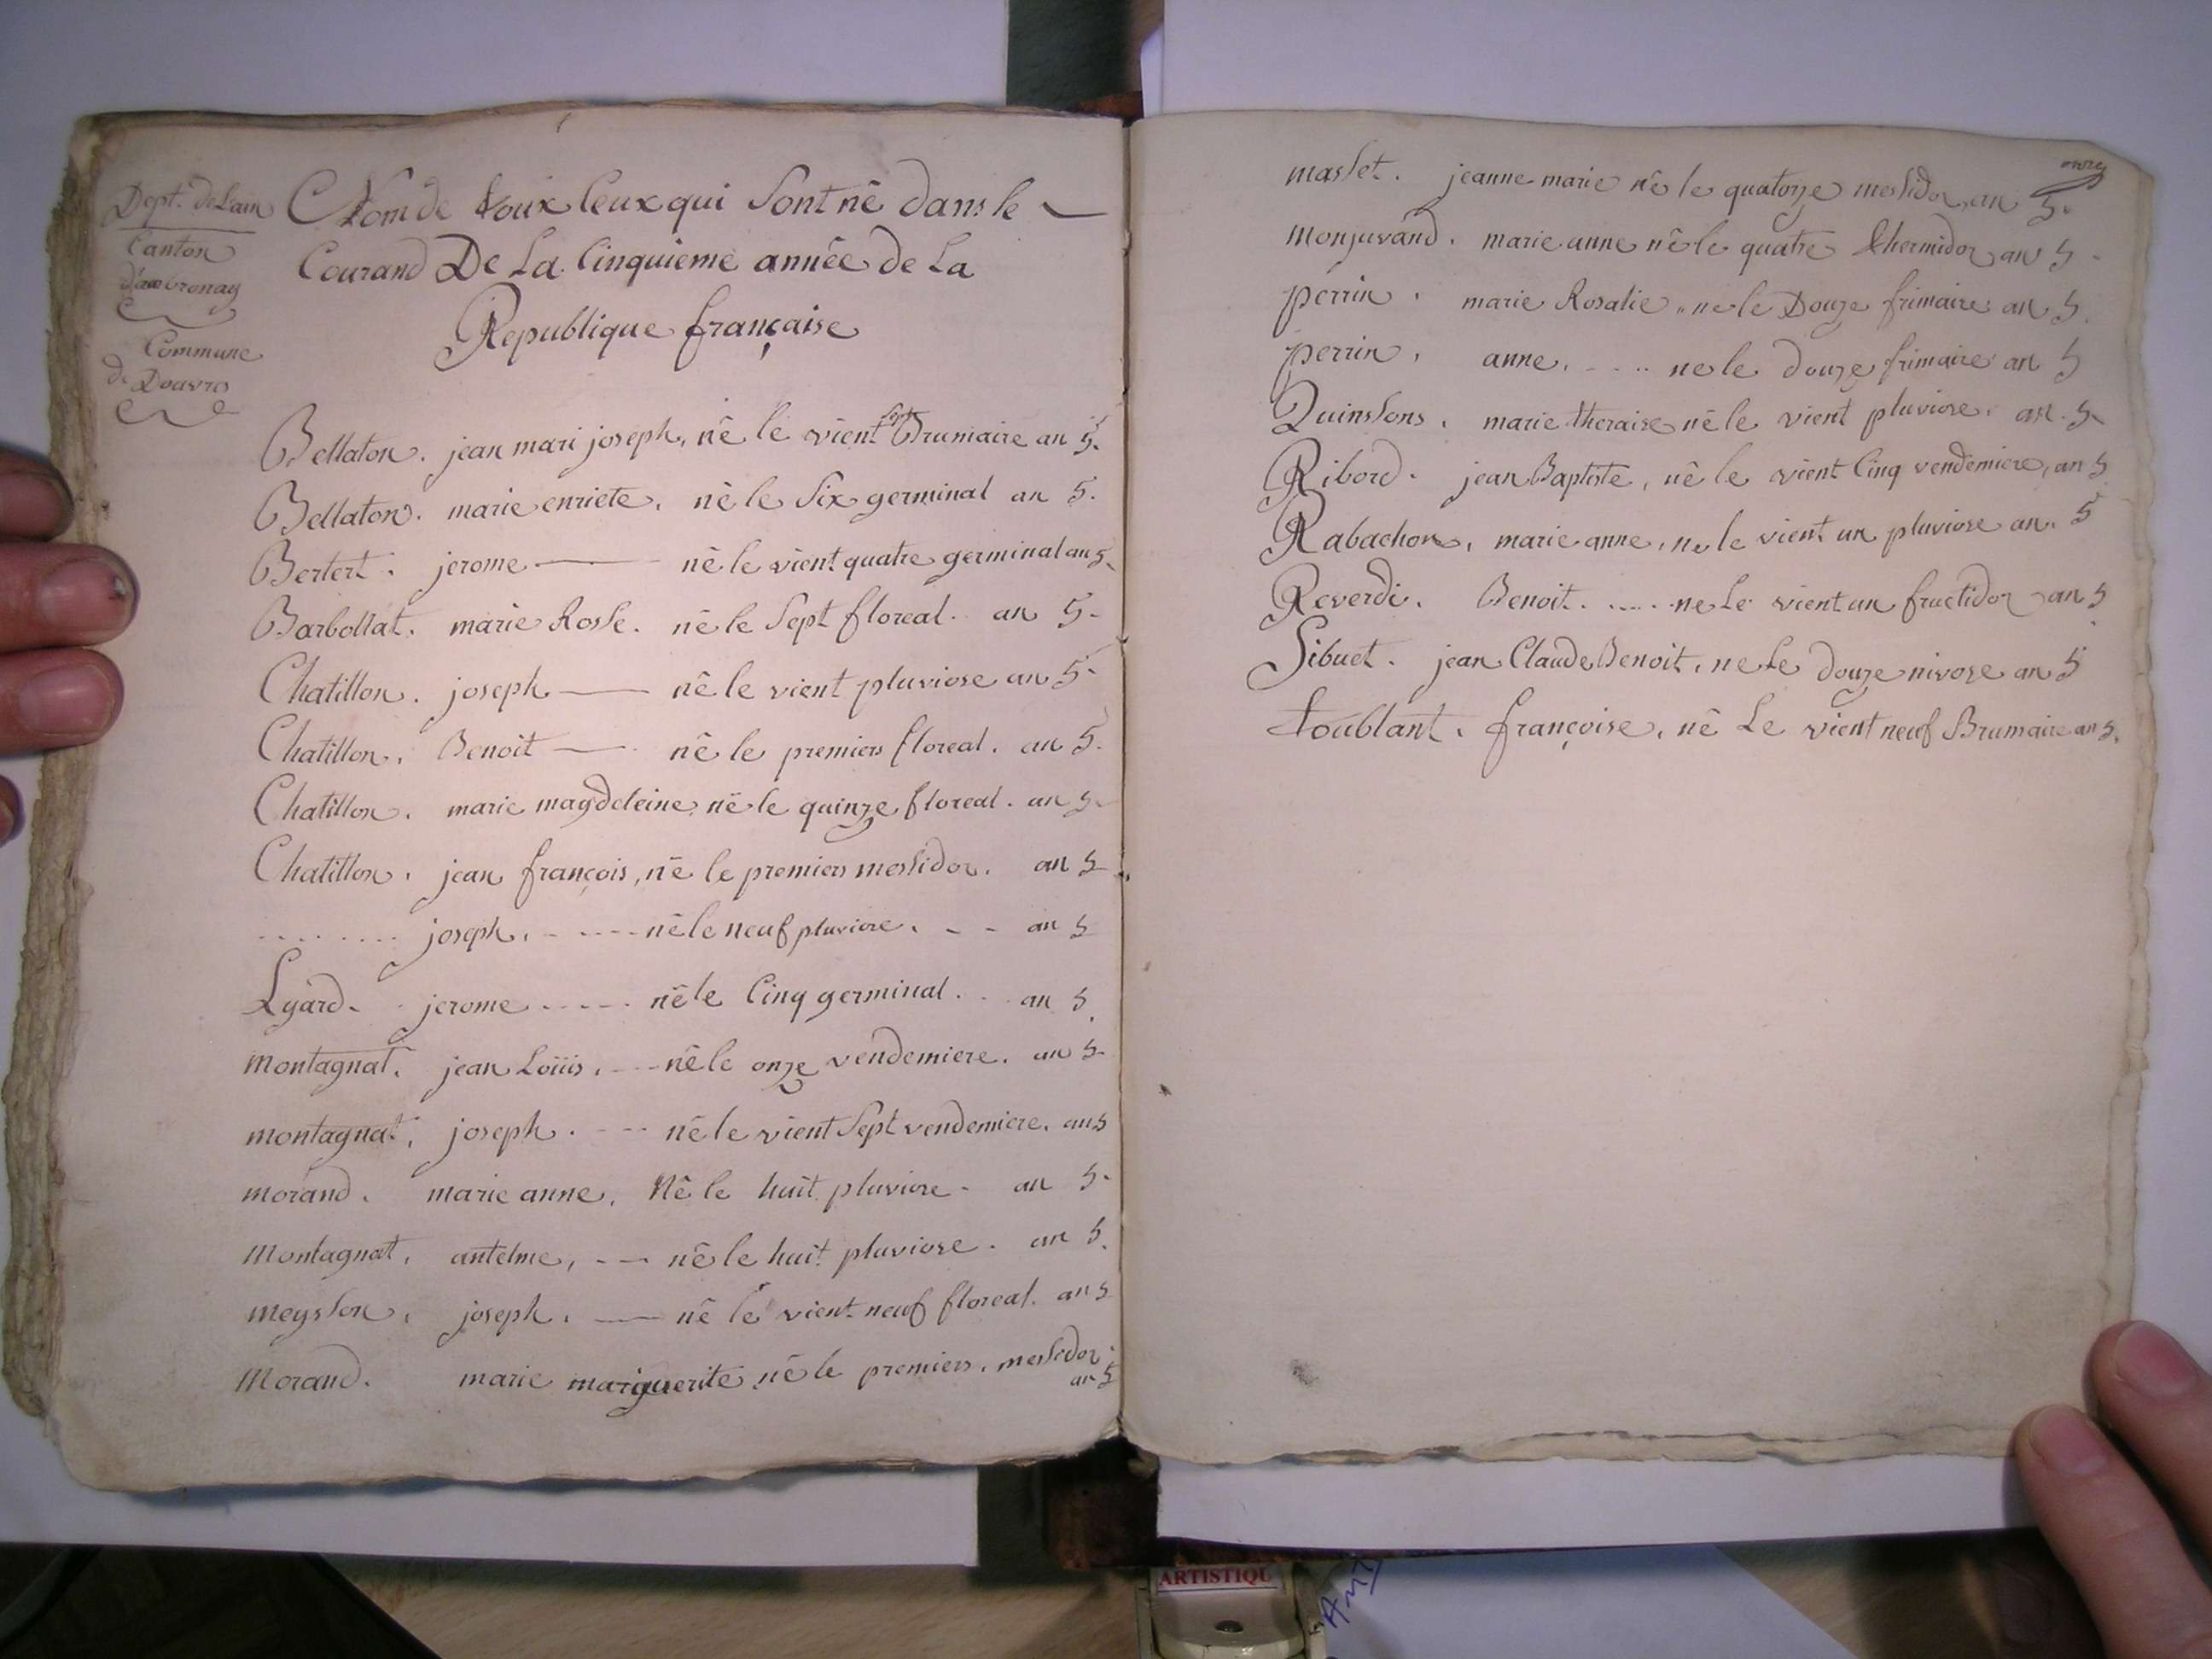 Dept. de Lain
Canton
d'ambronay
Commune
de Douvres
Nom de toux Ceux qui Sont nê dans le
Courand De La Cinquieme année de La
Republique française
Bellaton. jean mari joseph, nê le vient sept Brumaire an 5.
Bellaton. marie enriete. nê le Six germinal an 5.
Bertert. jerome nê le vient quatre germinal an 5.
Barbollat. marie Rosse. nê le Sept floreal. an 5.
Chatillon. joseph nê le vient pluviose an 5.
Chatillon. Benoit nê le premiers floreal. an 5.
Chatillon. marie magdeleine nê le quinze floreal. an 5.
Chatillon. jean françois, nê le premiers messidor. an 5
......... joseph. nê le neuf pluviose. an 5
Lyard. jerome nê le Cinq germinal. an 5.
montagnat. jean Loüis. nê le onze vendemiere. an 5.
montagnat. joseph. nê le vient Sept vendemiere. an 5
morand. marie anne. Nê le huit pluviose. an 5.
Montagnat. antelme, nê le huit pluviose. an 5.
meysson. joseph. nê le vient neuf floreal. an 5
Morand. marie marguerite nê le premiers. messidor.
an 5
masset. jeanne marie nê le quatorze messidor an 5.
Monjuvand. marie anne nê le quatre thermidor an 5.
perrin. marie Rosalie ne le Douze frimaire an 5.
perrin. anne. .... ne le douze frimaire an 5
Quinssons. marie theraise nê le vient pluviose. an. 5
Ribord. jean Baptiste, nê le vient Cinq vendemiere, an 5
Rabachon. marie anne, ne le vient un pluviose an. 5
Reverdi. Benoit. ..... ne Le vient un fructidor an 5
Sibuet. jean Claude Benoit. ne Le douze nivose an 5
toublant. françoise, nê Le vient neuf Brumaire an 5.
ARTISTIQU